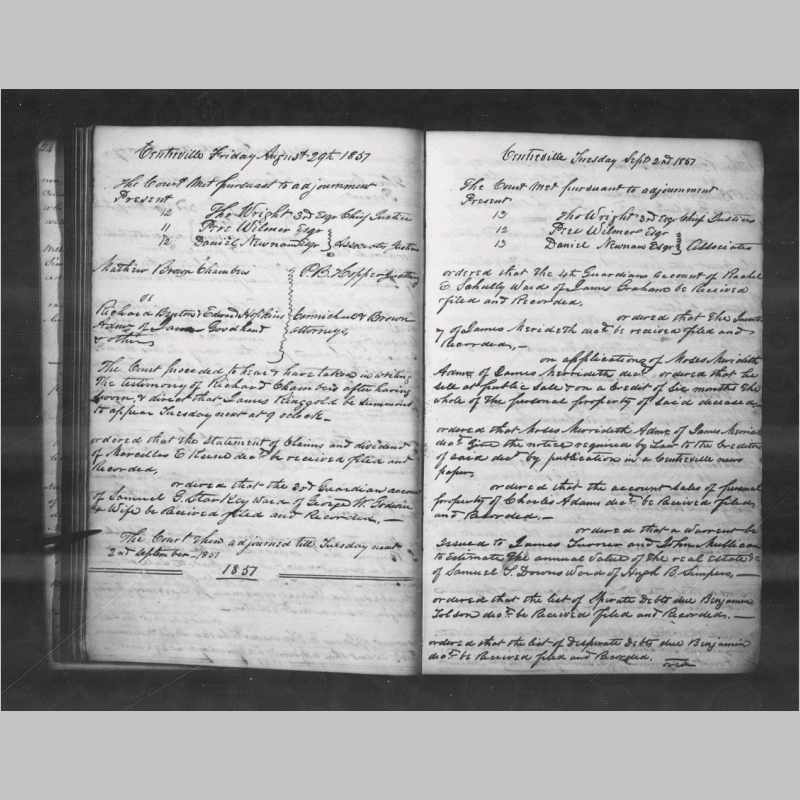 Centreville Friday August 29th 1851
The Court Met pursuant to adjournment
Present
12 Tho Wright 3rd Esqr Chief Justice
11 Pere Wilmer Esqr
12 Daniel Newnam Esqr } Associate Justices
Mathew Brown Chambers
P.B. Hopper for
vs
Richard & Edwd Hopkins
Carmichael & Brown
Admrs of James Goodhand
attorneys
& others
The Court proceeded to hear & have taken in writing
The testimony of Richard Chambers after having
sworn, & direct that James Ringgold be summoned
to appear Tuesday next at 9 oclock
ordered that the Statement of Claims and dividend
of Marcellus E Keene decd. be received filed and
Recorded,
ordered that the 3rd Guardian account
of Samuel G. Starkey Ward of George W. Godwin
& Wife be Received filed and Recorded, —
The Court then adjourned till Tuesday next
2nd September 1851
1851
Centreville Tuesday Sept 2nd 1851
The Court Met pursuant to adjournment
Present
13 Tho Wright 3rd Esqr Chief Justice
12 Pere Wilmer Esqr
13 Daniel Newnam Esqr } Associates
ordered that the 4th Guardians account of Rachel
E. Ward of James Graham be Received
filed and Recorded,
ordered that the
of James Merideth decd. be received filed and
Recorded, —
on application of Moses Merideth
Admr of James Merideth decd. ordered that he
sell at public Sale & on a Credit of six months the
whole of the personal property of said deceased —
ordered that Moses Merideth Admr of James Merideth
decd. give the notice required by Law to the Creditors
of said decd. by publication in a Centreville news
paper,
ordered that the account Sales of personal
property of Charles Adams decd. be Received filed
and Recorded. —
ordered that a warrent be
Issued to James Turner and John
to Estimate The annual value of the real estate &c
of Samuel T. Downs Ward of Hugh B. Simpers, —
ordered that the list of Sperate Debts due Benjamin
Tolson decd. be Received filed and Recorded. —
ordered that the list of Desperate Debts due Benjamin
decd. be Received filed and Recorded.
over